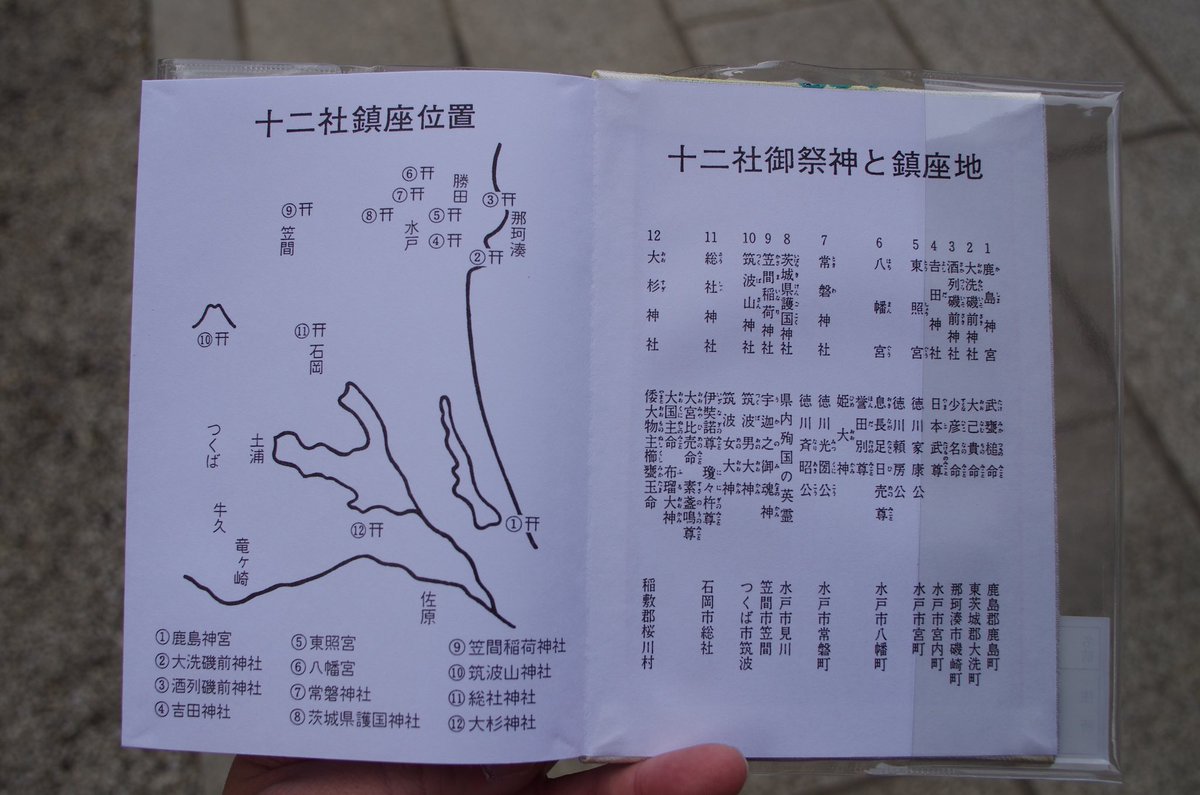 十二社鎮座位置
⑥
⑦
⑧
勝田
③
那珂湊
⑤
④
水戸
②
⑨
笠間
⑩
⑪
石岡
つくば
土浦
牛久
竜ヶ崎
⑫
①
佐原
①鹿島神宮
②大洗磯前神社
③酒列磯前神社
④吉田神社
⑤東照宮
⑥八幡宮
⑦常磐神社
⑧茨城県護国神社
⑨笠間稲荷神社
⑩筑波山神社
⑪総社神社
⑫大杉神社
十二社御祭神と鎮座地
1 鹿島神宮 武甕槌命 鹿島郡鹿島町
2 大洗磯前神社 大己貴命 東茨城郡大洗町
3 酒列磯前神社 少彦名命 那珂湊市磯崎町
4 吉田神社 日本武尊 水戸市宮内町
5 東照宮 徳川家康公 水戸市宮町
徳川頼房公
6 八幡宮 息長足日売尊 水戸市八幡町
誉田別尊
姫大神
7 常磐神社 徳川光圀公 水戸市常磐町
徳川斉昭公
8 茨城県護国神社 県内殉国の英霊 水戸市見川
9 笠間稲荷神社 宇迦之御魂神 笠間市笠間
10 筑波山神社 筑波男大神 つくば市筑波
筑波女大神
11 総社神社 伊弉諾尊 瓊々杵尊 石岡市総社
大宮比売命 素盞鳴尊
大国主命 布瑠大神
12 大杉神社 倭大物主櫛甕玉命 稲敷郡桜川村